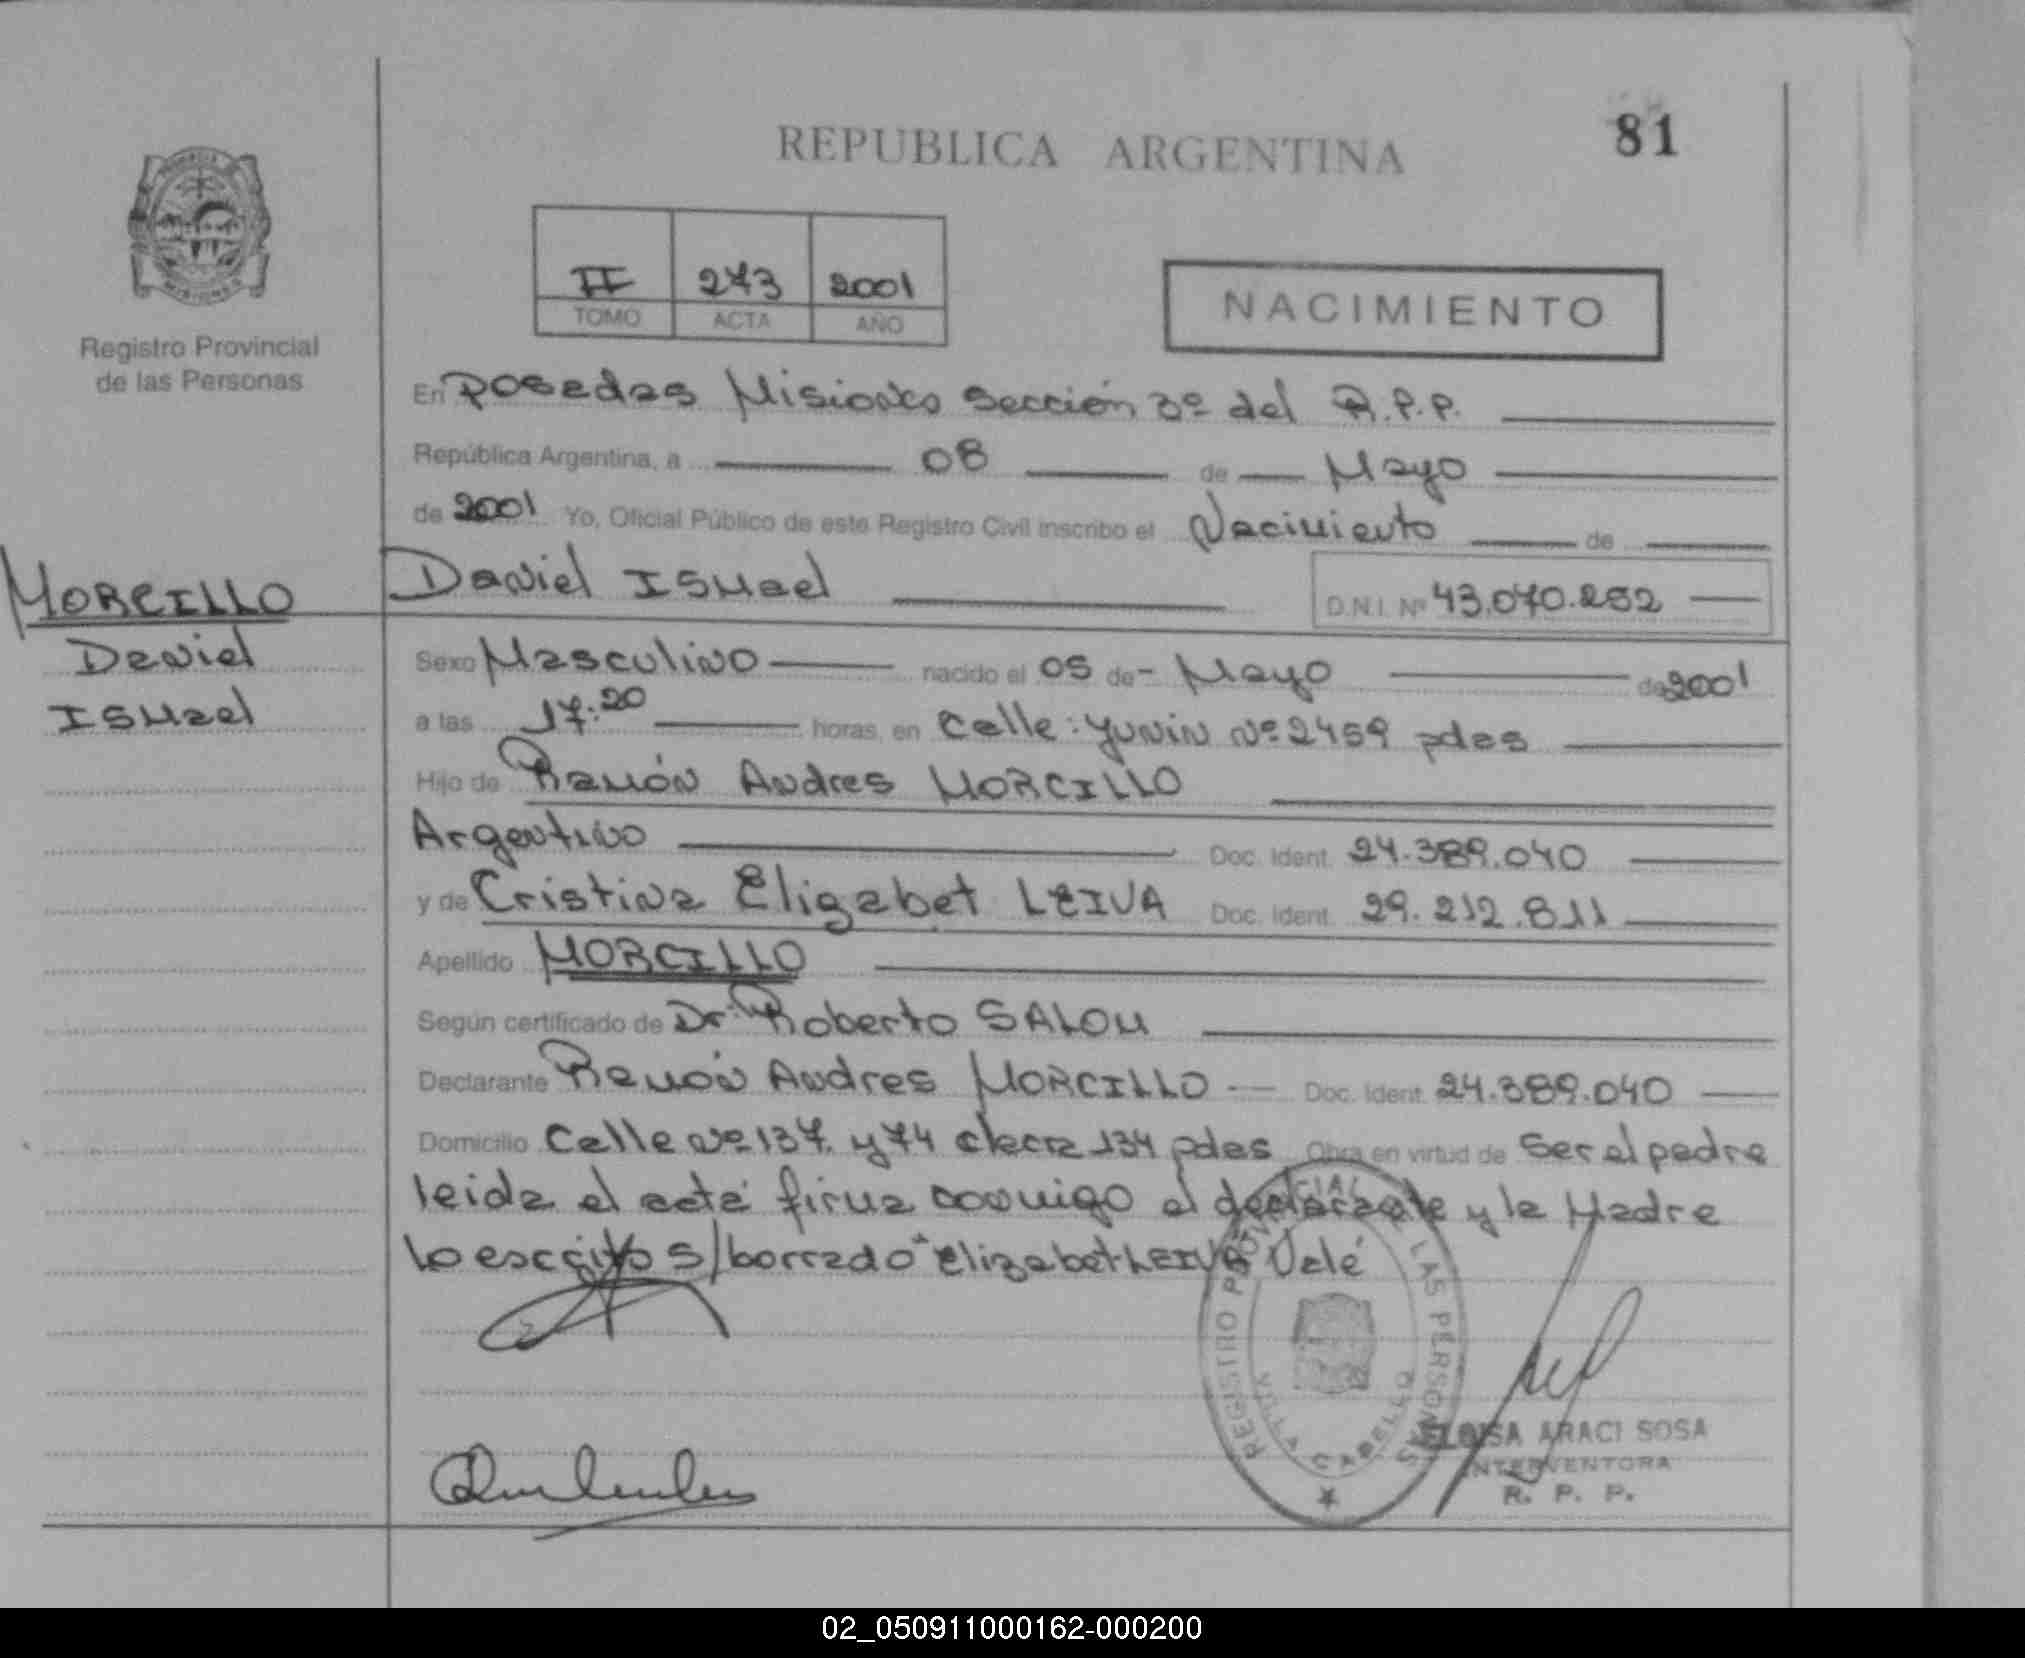 REPUBLICA ARGENTINA
81
PROVINCIA
MISIONES
Registro Provincial
de las Personas
II 273 2001
TOMO ACTA AÑO
NACIMIENTO
En Posadas Misiones Sección 3º del R.P.P.
República Argentina, a 08 de Mayo
de 2001 Yo, Oficial Público de este Registro Civil inscribo el Nacimiento de
Daniel ISMael D.N.I. Nº 43.070.252
MORCILLO
Daniel
ISMael
Sexo Masculino nacido el 05 de Mayo de 2001
a las 17:20 horas, en Calle: Yunin Nº 2459 pdas
Hijo de Ramón Andres MORCILLO
Argentino Doc. Ident. 24.389.040
y de Cristina Elizabet LEIVA Doc. Ident. 29.212.811
Apellido MORCILLO
Según certificado de Dr. Roberto SALOM
Declarante Ramón Andres MORCILLO Doc. Ident. 24.389.040
Domicilio Calle Nº 137 y 74 chacra 134 pdas Obra en virtud de Ser el padre
leida el acta firma conmigo el declarante y la Madre
lo escrito s/borrado "Elizabet LEIVA" Vale
REGISTRO PROVINCIAL DE LAS PERSONAS
VILLA CABELLO
ELOISA ARACI SOSA
INTERVENTORA
R. P. P.
02_050911000162-000200